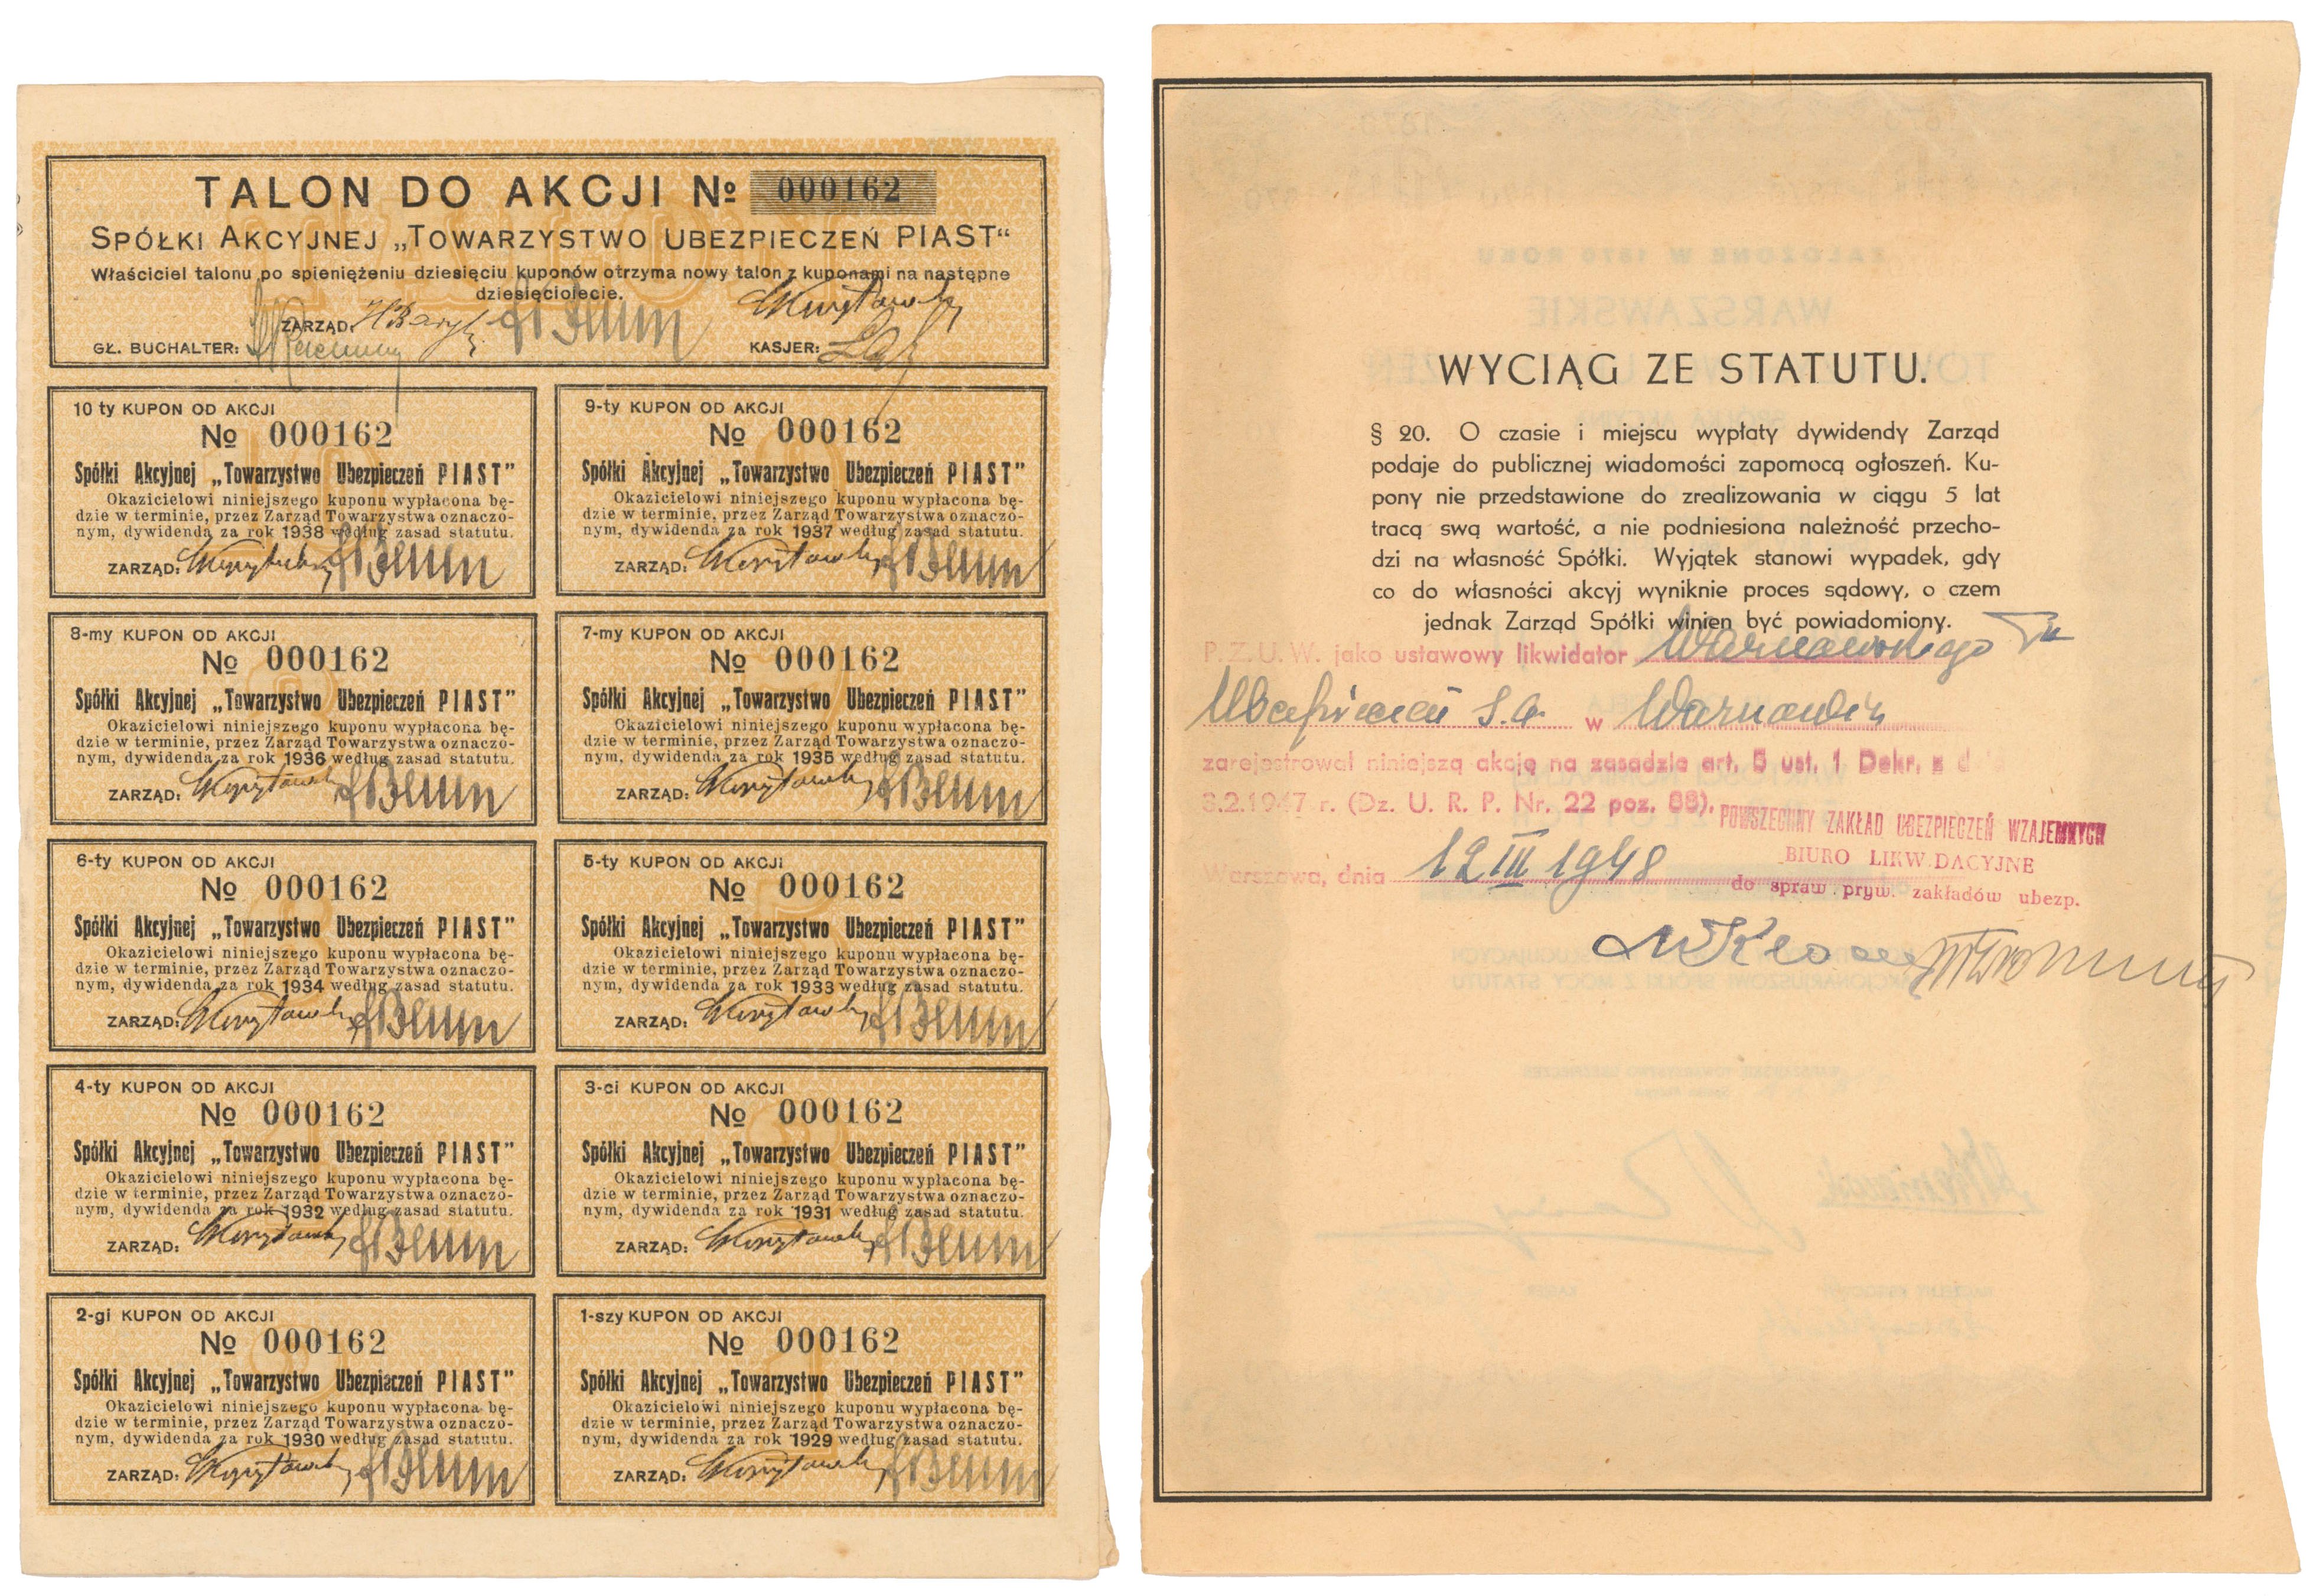 TALON DO AKCJI № 000162
SPÓŁKI AKCYJNEJ „TOWARZYSTWO UBEZPIECZEŃ PIAST“
Właściciel talonu po spieniężeniu dziesięciu kuponów otrzyma nowy talon z kuponami na następne
dziesięciolecie.
ZARZĄD:
GŁ. BUCHALTER:
KASJER:
10 ty KUPON OD AKCJI
№ 000162
Spółki Akcyjnej „Towarzystwo Ubezpieczeń PIAST”
Okazicielowi niniejszego kuponu wypłacona bę-
dzie w terminie, przez Zarząd Towarzystwa oznaczo-
nym, dywidenda za rok 1938 według zasad statutu.
ZARZĄD:
9-ty KUPON OD AKCJI
№ 000162
Spółki Akcyjnej „Towarzystwo Ubezpieczeń PIAST”
Okazicielowi niniejszego kuponu wypłacona bę-
dzie w terminie, przez Zarząd Towarzystwa oznaczo-
nym, dywidenda za rok 1937 według zasad statutu.
ZARZĄD:
8-my KUPON OD AKCJI
№ 000162
Spółki Akcyjnej „Towarzystwo Ubezpieczeń PIAST”
Okazicielowi niniejszego kuponu wypłacona bę-
dzie w terminie, przez Zarząd Towarzystwa oznaczo-
nym, dywidenda za rok 1936 według zasad statutu.
ZARZĄD:
7-my KUPON OD AKCJI
№ 000162
Spółki Akcyjnej „Towarzystwo Ubezpieczeń PIAST”
Okazicielowi niniejszego kuponu wypłacona bę-
dzie w terminie, przez Zarząd Towarzystwa oznaczo-
nym, dywidenda za rok 1935 według zasad statutu.
ZARZĄD:
6-ty KUPON OD AKCJI
№ 000162
Spółki Akcyjnej „Towarzystwo Ubezpieczeń PIAST”
Okazicielowi niniejszego kuponu wypłacona bę-
dzie w terminie, przez Zarząd Towarzystwa oznaczo-
nym, dywidenda za rok 1934 według zasad statutu.
ZARZĄD:
5-ty KUPON OD AKCJI
№ 000162
Spółki Akcyjnej „Towarzystwo Ubezpieczeń PIAST”
Okazicielowi niniejszego kuponu wypłacona bę-
dzie w terminie, przez Zarząd Towarzystwa oznaczo-
nym, dywidenda za rok 1933 według zasad statutu.
ZARZĄD:
4-ty KUPON OD AKCJI
№ 000162
Spółki Akcyjnej „Towarzystwo Ubezpieczeń PIAST”
Okazicielowi niniejszego kuponu wypłacona bę-
dzie w terminie, przez Zarząd Towarzystwa oznaczo-
nym, dywidenda za rok 1932 według zasad statutu.
ZARZĄD:
3-ci KUPON OD AKCJI
№ 000162
Spółki Akcyjnej „Towarzystwo Ubezpieczeń PIAST”
Okazicielowi niniejszego kuponu wypłacona bę-
dzie w terminie, przez Zarząd Towarzystwa oznaczo-
nym, dywidenda za rok 1931 według zasad statutu.
ZARZĄD:
2-gi KUPON OD AKCJI
№ 000162
Spółki Akcyjnej „Towarzystwo Ubezpieczeń PIAST”
Okazicielowi niniejszego kuponu wypłacona bę-
dzie w terminie, przez Zarząd Towarzystwa oznaczo-
nym, dywidenda za rok 1930 według zasad statutu.
ZARZĄD:
1-szy KUPON OD AKCJI
№ 000162
Spółki Akcyjnej „Towarzystwo Ubezpieczeń PIAST”
Okazicielowi niniejszego kuponu wypłacona bę-
dzie w terminie, przez Zarząd Towarzystwa oznaczo-
nym, dywidenda za rok 1929 według zasad statutu.
ZARZĄD:
WYCIĄG ZE STATUTU.
§ 20. O czasie i miejscu wypłaty dywidendy Zarząd
podaje do publicznej wiadomości zapomocą ogłoszeń. Ku-
pony nie przedstawione do zrealizowania w ciągu 5 lat
tracą swą wartość, a nie podniesiona należność przecho-
dzi na własność Spółki. Wyjątek stanowi wypadek, gdy
co do własności akcyj wyniknie proces sądowy, o czem
jednak Zarząd Spółki winien być powiadomiony.
P. Z. U. W. jako ustawowy likwidator Warszawskiego Tw
Ubezpieczeń S.A. w Warszawie
zarejestrował niniejszą akcję na zasadzie art. 5 ust. 1 Dekr. z d
3.2.1947 r. (Dz. U. R. P. Nr. 22 poz. 88).
POWSZECHNY ZAKŁAD UBEZPIECZEŃ WZAJEMNYCH
BIURO LIKW DACYJNE
do spraw pryw. zakładów ubezp.
Warszawa, dnia 12 III 1948